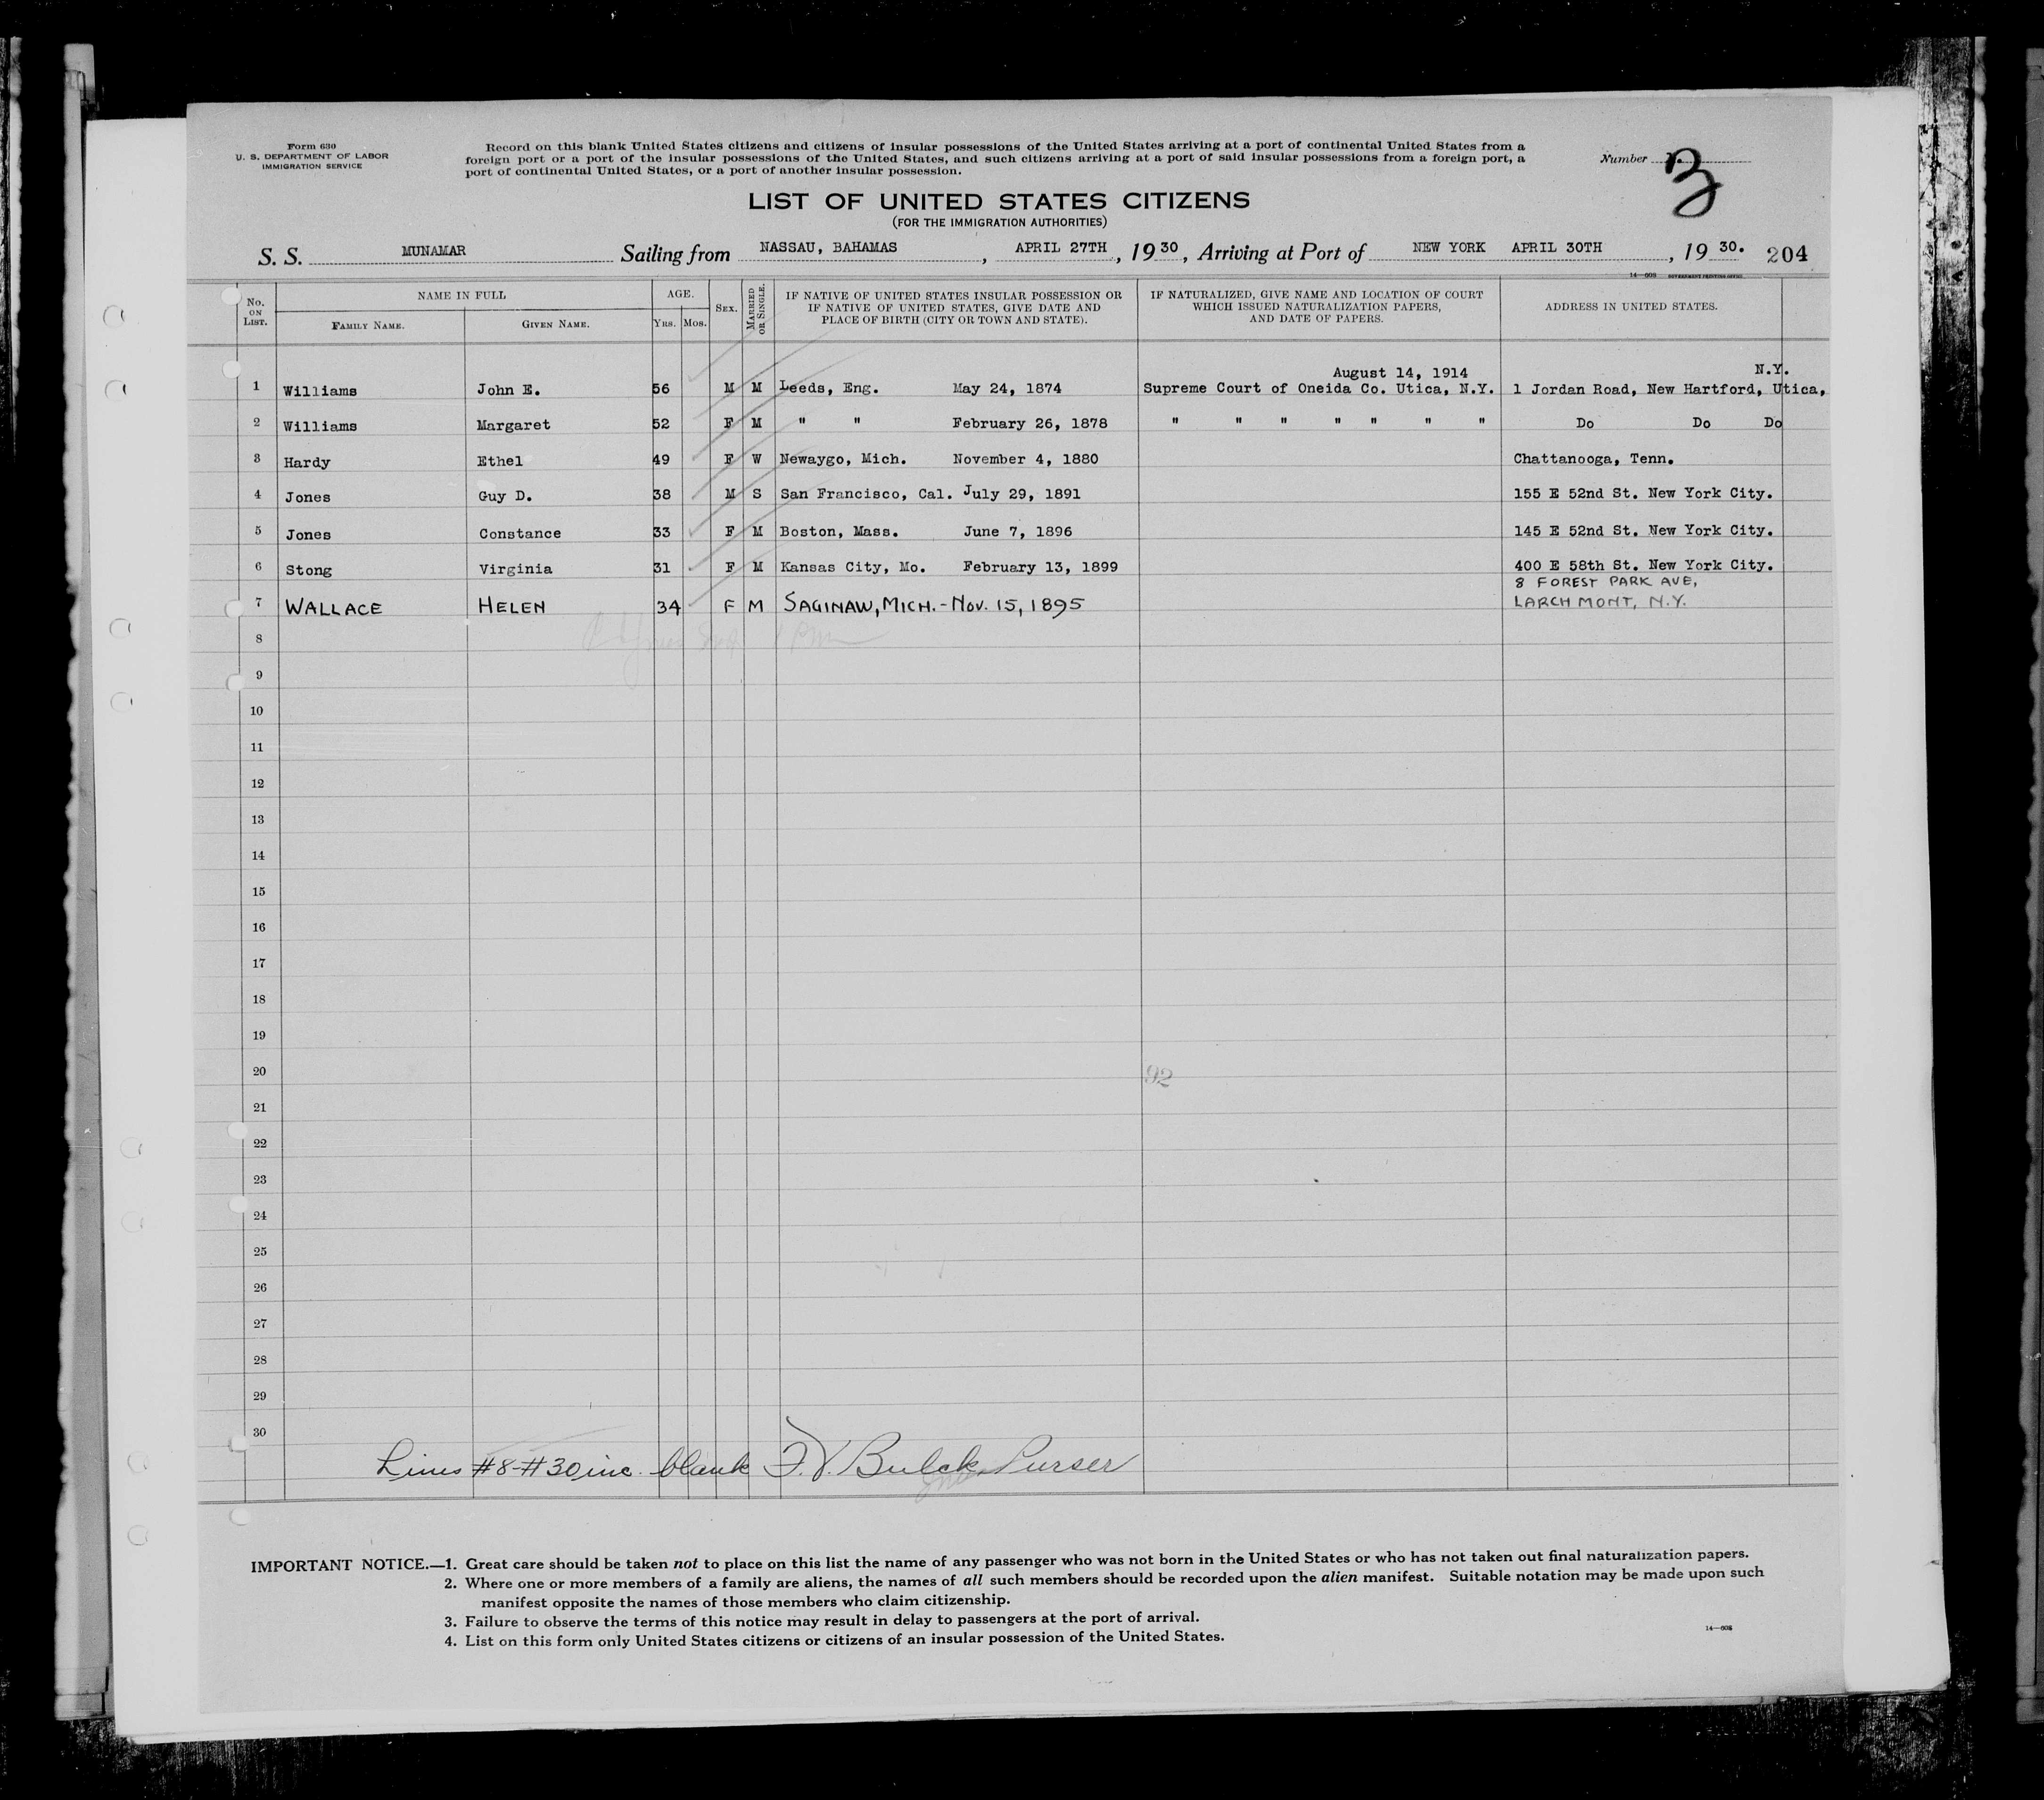 Form 630
U. S. DEPARTMENT OF LABOR
IMMIGRATION SERVICE
Record on this blank United States citizens and citizens of insular possessions of the United States arriving at a port of continental United States from a
foreign port or a port of the insular possessions of the United States, and such citizens arriving at a port of said insular possessions from a foreign port, a
port of continental United States, or a port of another insular possession.
Number 3
LIST OF UNITED STATES CITIZENS
(FOR THE IMMIGRATION AUTHORITIES)
S. S. MUNAMAR Sailing from NASSAU, BAHAMAS, APRIL 27TH, 1930, Arriving at Port of NEW YORK APRIL 30TH, 19 30. 204
14—608 GOVERNMENT PRINTING OFFICE
No. ON LIST. NAME IN FULL AGE. SEX. MARRIED OR SINGLE. IF NATIVE OF UNITED STATES INSULAR POSSESSION OR IF NATIVE OF UNITED STATES, GIVE DATE AND PLACE OF BIRTH (CITY OR TOWN AND STATE). IF NATURALIZED, GIVE NAME AND LOCATION OF COURT WHICH ISSUED NATURALIZATION PAPERS, AND DATE OF PAPERS. ADDRESS IN UNITED STATES.
FAMILY NAME. GIVEN NAME. YRS. MOS.
August 14, 1914 N.Y.
1 Williams John E. 56 M M Leeds, Eng. May 24, 1874 Supreme Court of Oneida Co. Utica, N.Y. 1 Jordan Road, New Hartford, Utica,
2 Williams Margaret 52 F M " " February 26, 1878 " " " " " " " Do Do Do
3 Hardy Ethel 49 F W Newaygo, Mich. November 4, 1880 Chattanooga, Tenn.
4 Jones Guy D. 38 M S San Francisco, Cal. July 29, 1891 155 E 52nd St. New York City.
5 Jones Constance 33 F M Boston, Mass. June 7, 1896 145 E 52nd St. New York City.
6 Stong Virginia 31 F M Kansas City, Mo. February 13, 1899 400 E 58th St. New York City.
8 FOREST PARK AVE,
7 WALLACE HELEN 34 F M SAGINAW, MICH. - NOV. 15, 1895 LARCHMONT, N.Y.
8
9
10
11
12
13
14
15
16
17
18
19
20 92
21
22
23
24
25
26
27
28
29
30
Lines #8-#30 inc. blank F.V. Bulck Purser
IMPORTANT NOTICE.—1. Great care should be taken not to place on this list the name of any passenger who was not born in the United States or who has not taken out final naturalization papers.
2. Where one or more members of a family are aliens, the names of all such members should be recorded upon the alien manifest. Suitable notation may be made upon such
manifest opposite the names of those members who claim citizenship.
3. Failure to observe the terms of this notice may result in delay to passengers at the port of arrival.
4. List on this form only United States citizens or citizens of an insular possession of the United States.
14—608